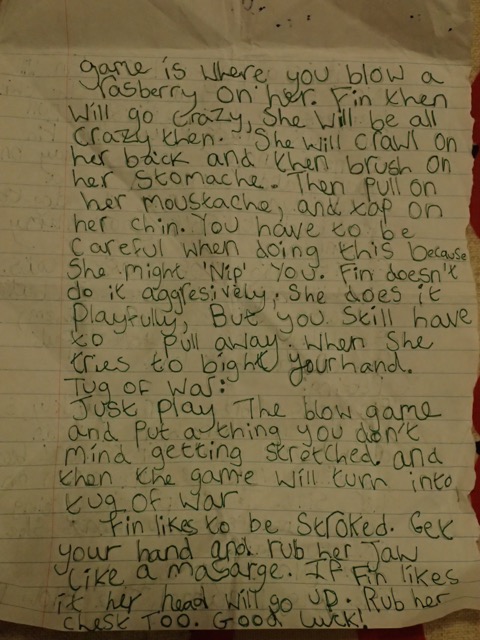 game is where you blow a
rasberry on her. Fin then
will go crazy, She will be all
crazy then. She will crawl on
her back and then brush on
her stomache. Then pull on
her moustache, and tap on
her chin. You have to be
careful when doing this because
She might 'Nip' you. Fin doesn't
do it aggresively. She does it
Playfully, But you Still have
to pull away when She
tries to bight your hand.
Tug of war:
Just Play The blow game
and put a thing you don't
mind getting stretched and
then the game will turn into
tug of war
Fin likes to be Stroked. Get
your hand and rub her Jaw
Like a masarge. If Fin likes
it her head will go up. Rub her
chest Too. Good Luck!